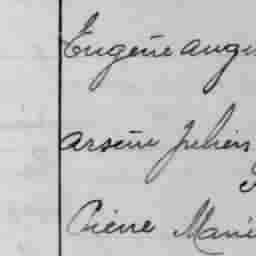 Eugène augu
arsène Julien
Pierre Marie